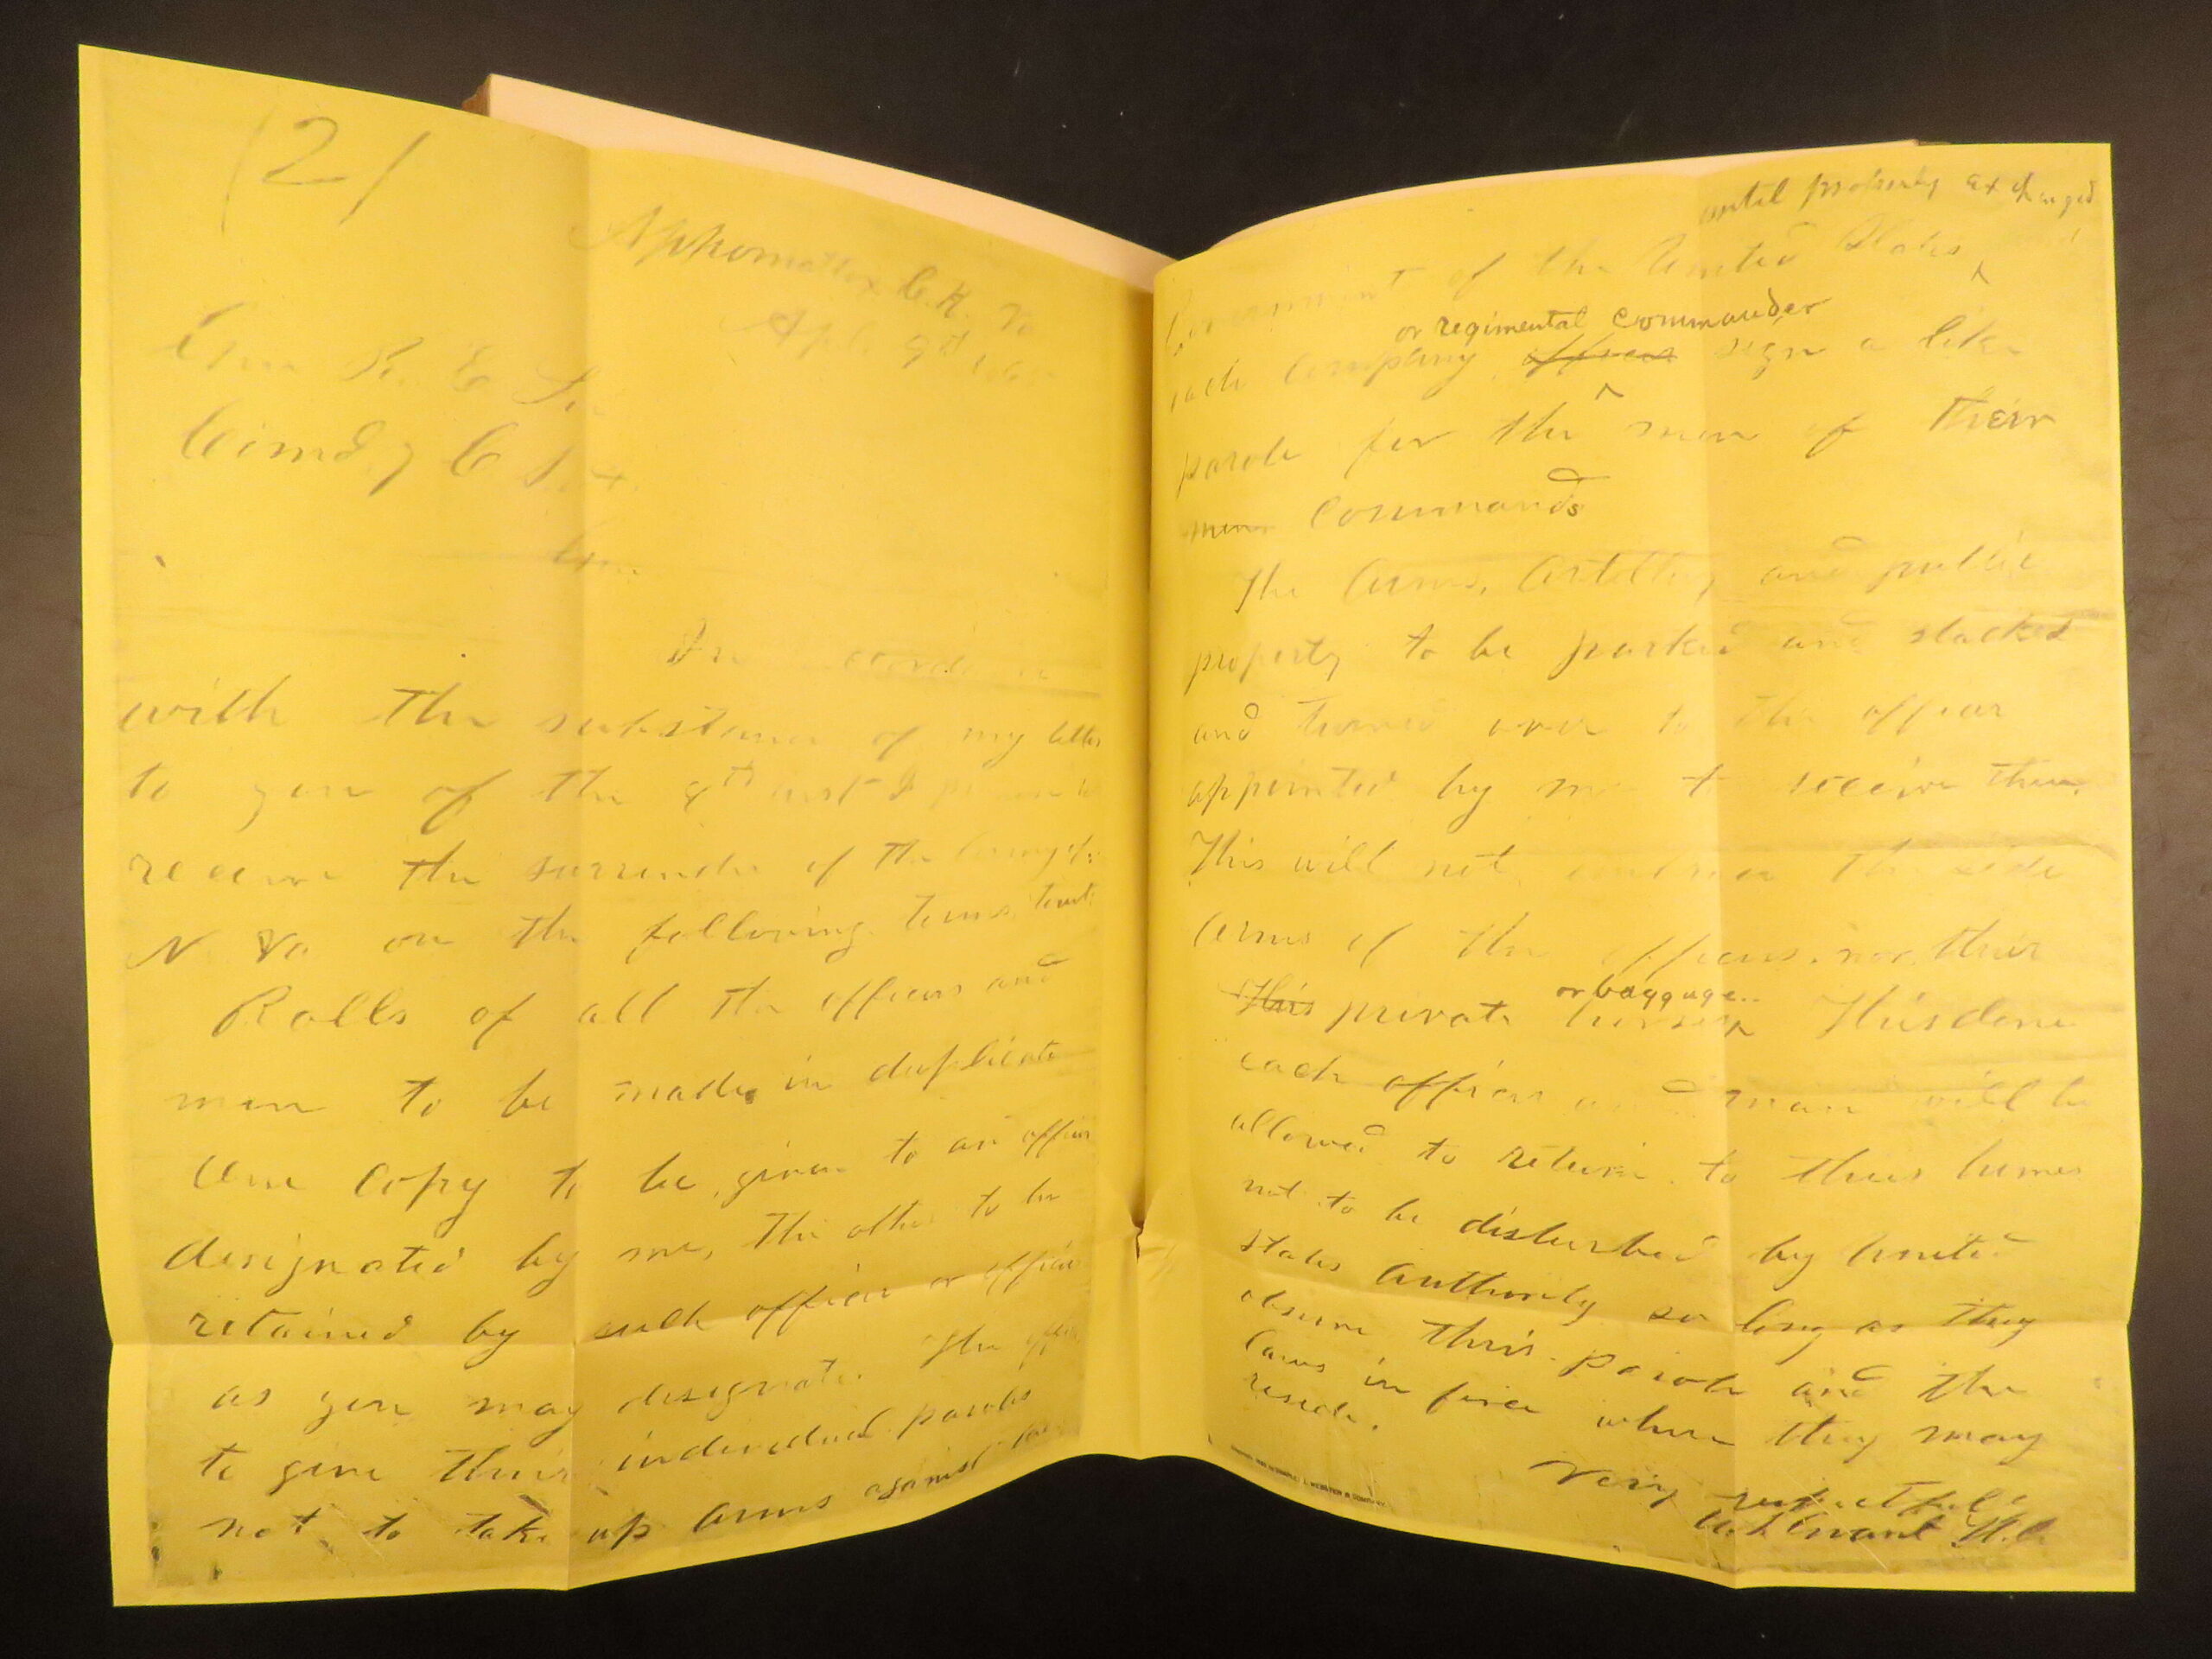 (2)
Appomattox C.H. Va
Apl. 9th 1865
Gen R. E. Lee
Comdg C.S.A.
Gen.
In accordance
with the substance of my letter
to you of the 8th inst I propose to
receive the surrender of the Army of
N. Va on the following terms, towit:
Rolls of all the officers and
men to be made in duplicate
One copy to be given to an officer
designated by me, the other to be
retained by such officer or officers
as you may designate. The officers
to give their individual paroles
not to take up arms against the
until properly exchanged
Government of the United States and
or regimental commander
each company officers sign a like
parole for the men of their
men commands
The Arms, Artillery and public
property to be parked and stacked
and turned over to the officer
appointed by me to receive them.
This will not embrace the side
arms of the officers, nor their
or baggage..
This private horses This done
each officer and man will be
allowed to return to their homes
not to be disturbed by United
States Authority so long as they
observe their parole and the
laws in force where they may
reside.
Very respectfully
U.S. Grant Lt. Gl.